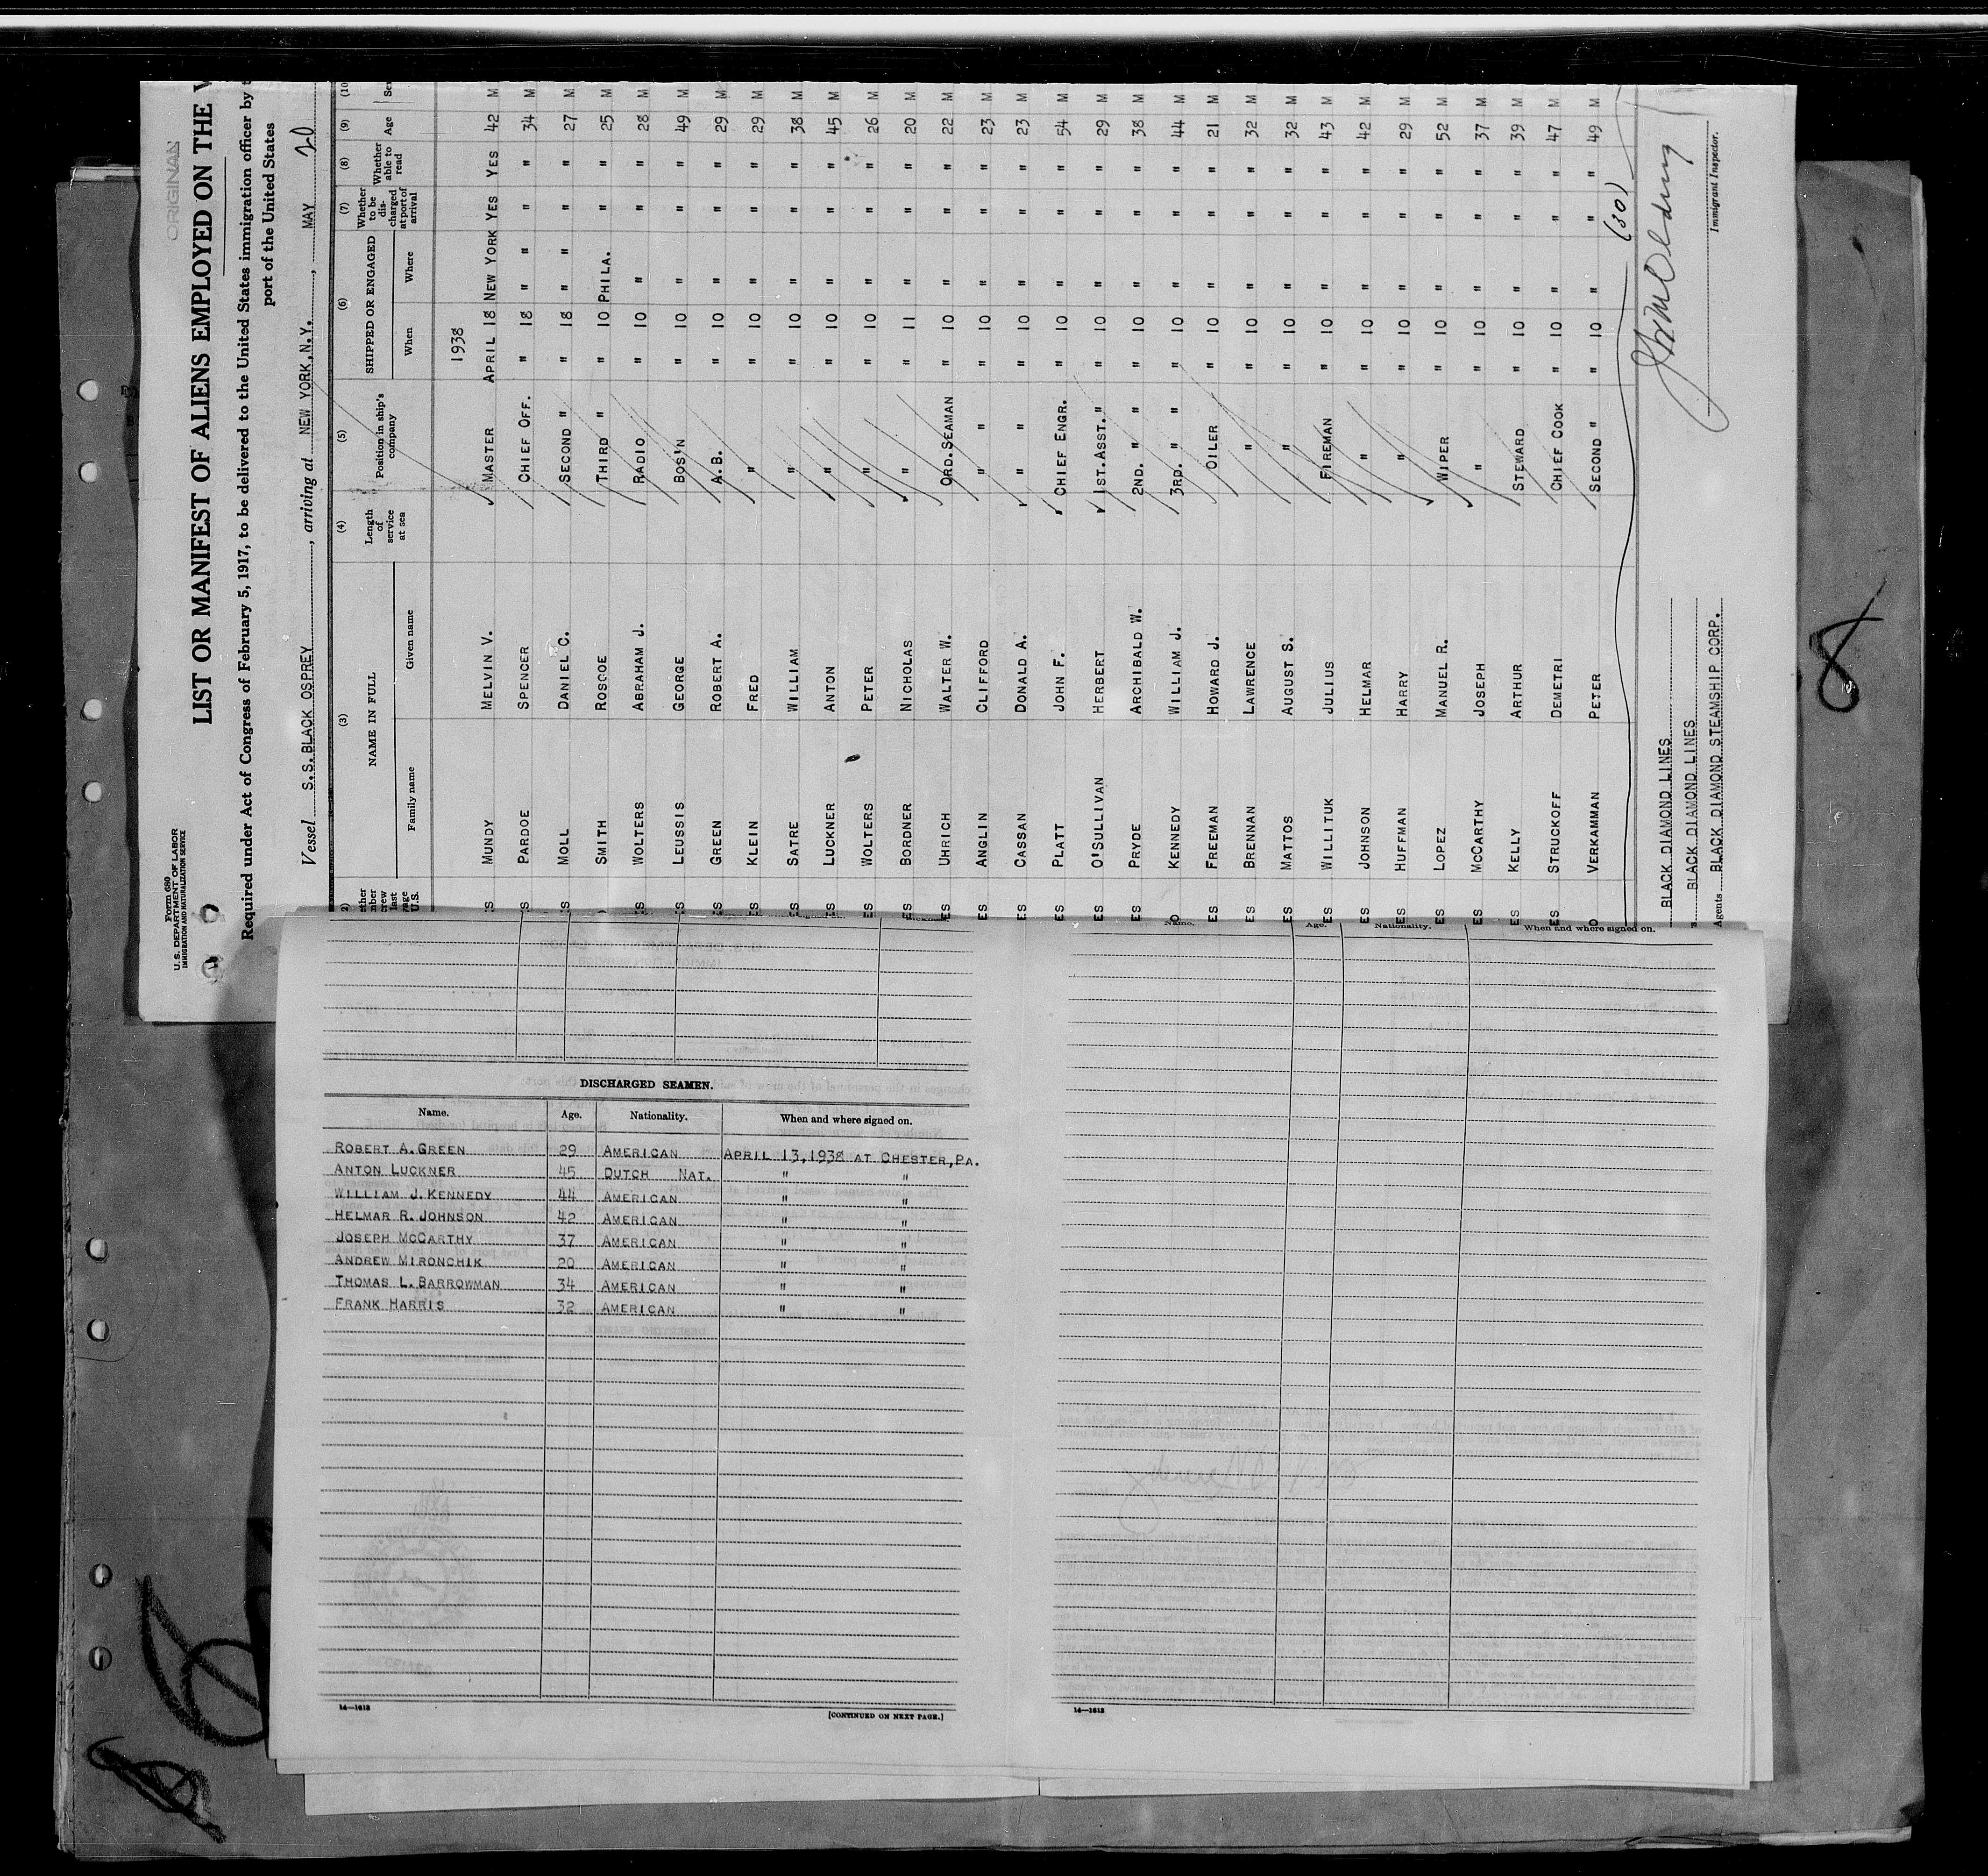 ORIGINAL
Form 680
U. S. DEPARTMENT OF LABOR
IMMIGRATION AND NATURALIZATION SERVICE
LIST OR MANIFEST OF ALIENS EMPLOYED ON THE
Required under Act of Congress of February 5, 1917, to be delivered to the United States immigration officer by
port of the United States
Vessel S.S. BLACK OSPREY, arriving at NEW YORK, N.Y., MAY 20
(3) (4) (5) (6) (7) (8) (9) (10
NAME IN FULL Length of service at sea Position in ship's company SHIPPED OR ENGAGED Whether to be discharged at port of arrival Whether able to read Age Sex
Family name Given name When Where
1938
MUNDY MELVIN V. MASTER APRIL 18 NEW YORK YES YES 42 M
PARDOE SPENCER CHIEF OFF. " 18 " " " " 34 M
MOLL DANIEL C. SECOND " " 18 " " " " 27 M
SMITH ROSCOE THIRD " " 10 PHILA. " " 25 M
WOLTERS ABRAHAM J. RADIO " 10 " " " 28 M
LEUSSIS GEORGE BOS'N " 10 " " " 49 M
GREEN ROBERT A. A.B. " 10 " " " 29 M
KLEIN FRED " " 10 " " " 29 M
SATRE WILLIAM " " 10 " " " 38 M
LUCKNER ANTON " " 10 " " " 45 M
WOLTERS PETER " " 10 " " " 26 M
BORDNER NICHOLAS " " 11 " " " 20 M
UHRICH WALTER W. ORD. SEAMAN " 10 " " " 22 M
ANGLIN CLIFFORD " " 10 " " " 23 M
CASSAN DONALD A. " " 10 " " " 23 M
PLATT JOHN F. CHIEF ENGR. " 10 " " " 54 M
O'SULLIVAN HERBERT 1ST. ASST. " " 10 " " " 29 M
PRYDE ARCHIBALD W. 2ND. " " " 10 " " " 38 M
KENNEDY WILLIAM J. 3RD. " " " 10 " " " 44 M
FREEMAN HOWARD J. OILER " 10 " " " 21 M
BRENNAN LAWRENCE " " 10 " " " 32 M
MATTOS AUGUST S. " " 10 " " " 32 M
WILLITUK JULIUS FIREMAN " 10 " " " 43 M
JOHNSON HELMAR " " 10 " " " 42 M
HUFFMAN HARRY " " 10 " " " 29 M
LOPEZ MANUEL R. WIPER " 10 " " " 52 M
MCCARTHY JOSEPH " " 10 " " " 37 M
KELLY ARTHUR STEWARD " 10 " " " 39 M
STRUCKOFF DEMETRI CHIEF COOK " 10 " " " 47 M
VERKAMMAN PETER SECOND " " 10 " " " 49 M
(30)
BLACK DIAMOND LINES
BLACK DIAMOND LINES
Agents BLACK DIAMOND STEAMSHIP CORP.
Immigrant Inspector.
8
Name. Age. Nationality. When and where signed on.
DISCHARGED SEAMEN.
Name. Age. Nationality. When and where signed on.
ROBERT A. GREEN 29 AMERICAN APRIL 13, 1938 AT CHESTER, PA.
ANTON LUCKNER 45 DUTCH NAT. " "
WILLIAM J. KENNEDY 44 AMERICAN " "
HELMAR R. JOHNSON 42 AMERICAN " "
JOSEPH MCCARTHY 37 AMERICAN " "
ANDREW MIRONCHIK 20 AMERICAN " "
THOMAS L. BARROWMAN 34 AMERICAN " "
FRANK HARRIS 32 AMERICAN " "
14—1613
[CONTINUED ON NEXT PAGE.]
14—1613